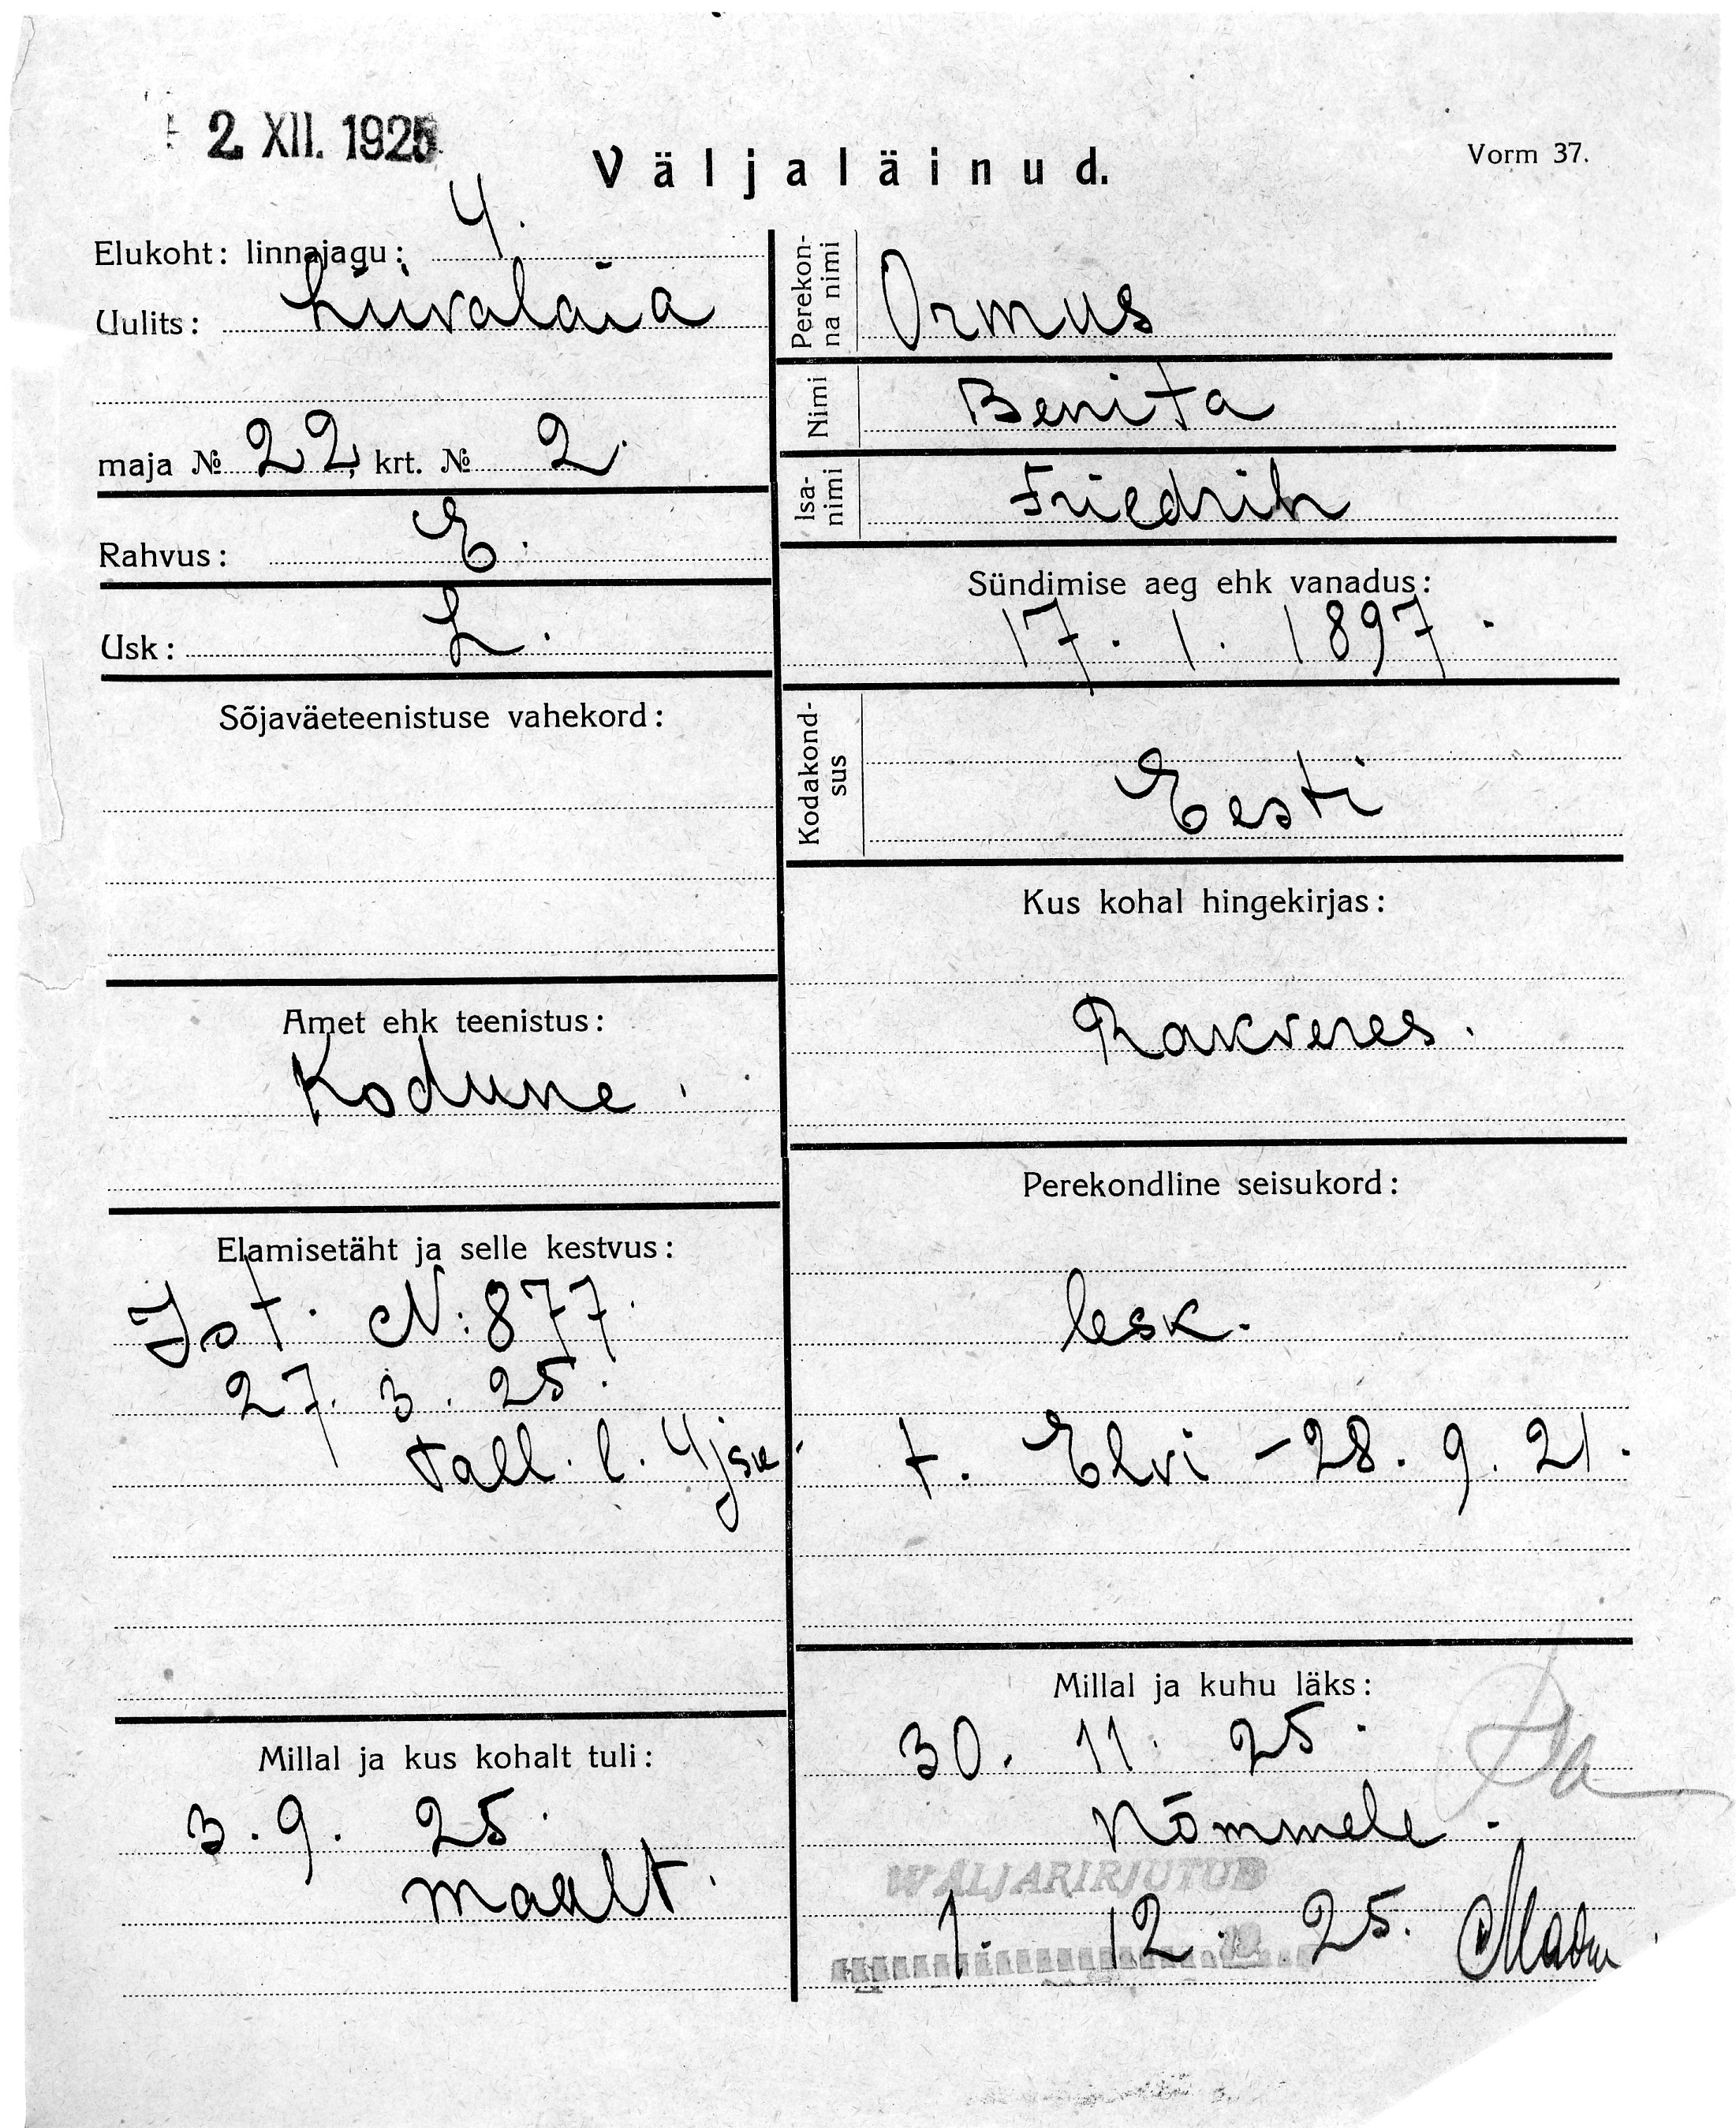 2. XII. 1925
Väljaläinud.
Vorm 37.
Elukoht: linnajagu: 4.
Uulits: Liivalaia
maja № 22, krt. № 2.
Rahvus: E.
Usk: L.
Sõjaväeteenistuse vahekord:
Amet ehk teenistus:
Kodune.
Elamisetäht ja selle kestvus:
Ist. N: 877.
27. 3. 25.
Tall. l. 4 jsk.
Millal ja kus kohalt tuli:
3. 9. 25.
maalt.
Perekonna nimi Ormus
Nimi Benita
Isanimi Friedrih
Sündimise aeg ehk vanadus:
17. 1. 1897.
Kodakondsus
Eesti
Kus kohal hingekirjas:
Rakveres.
Perekondline seisukord:
lesk.
t. Elvi – 28. 9. 21.
Millal ja kuhu läks:
30. 11. 25.
Nõmmele.
WÄLJAKIRJUTUD
1. 12. 25.